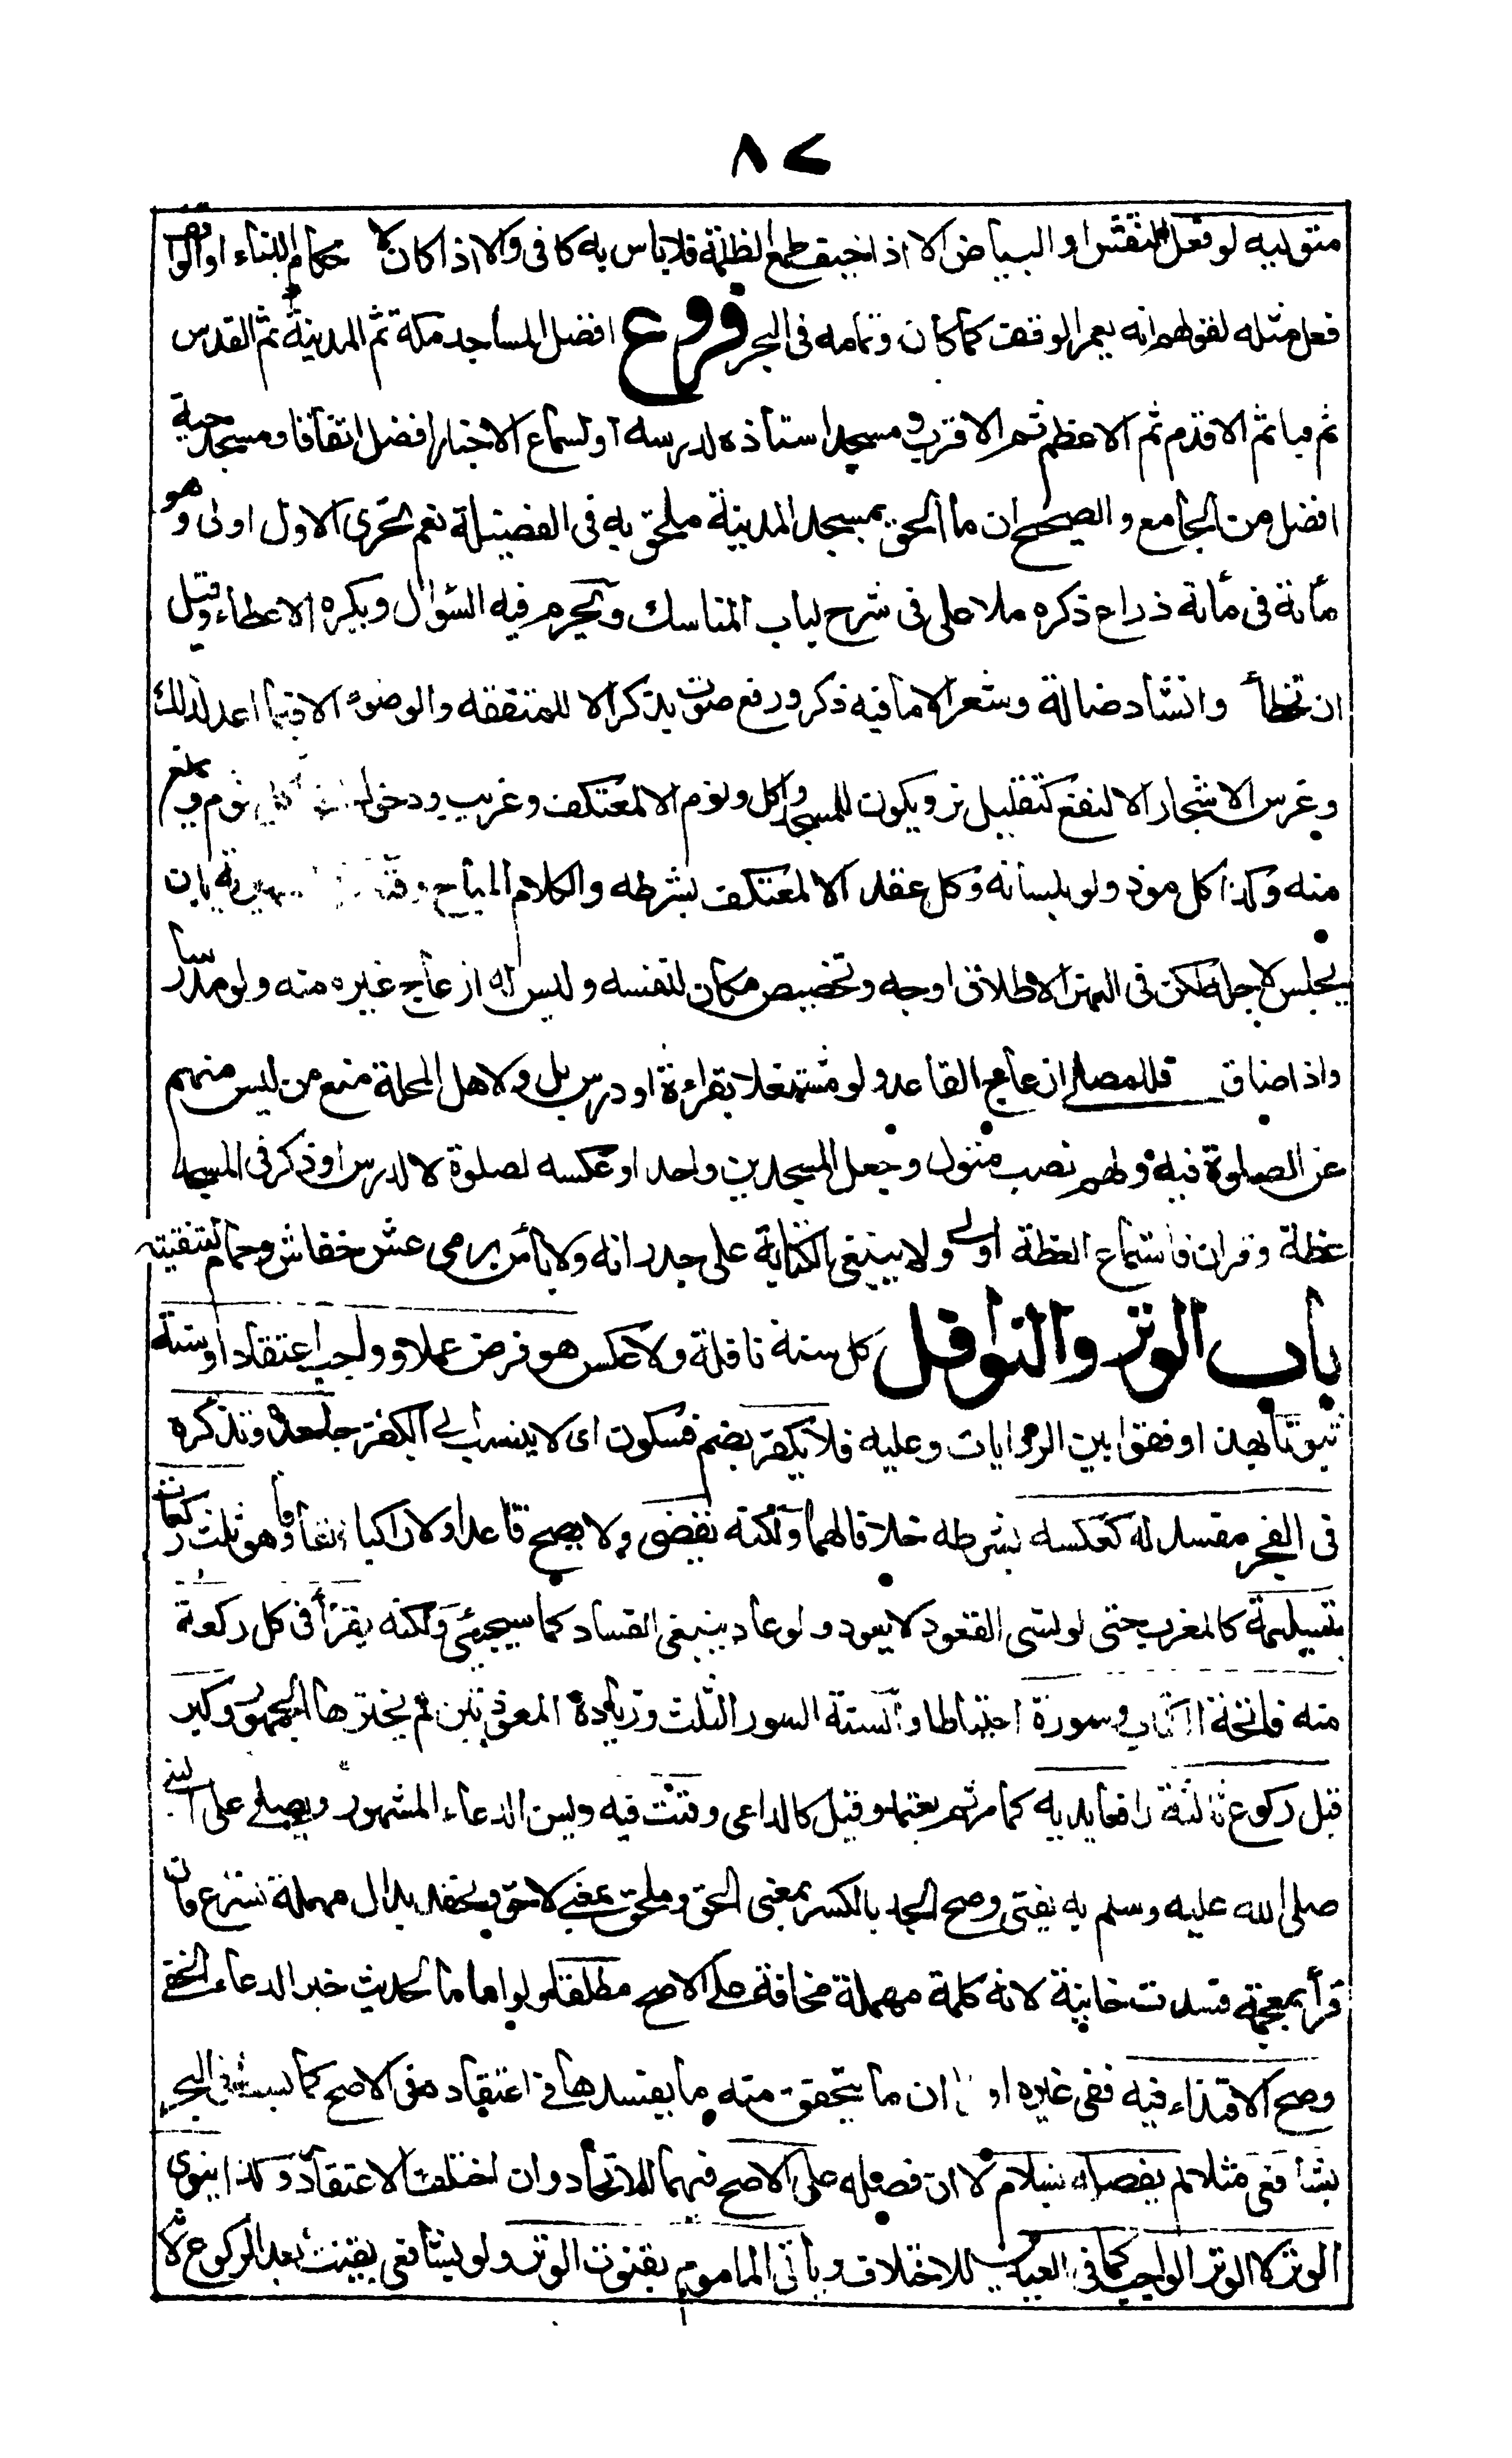 ٨٧
متوليه لو فعل النقش او البياض الا اذا خيف طمع الظلمة فلا باس به كافى والا اذا كان لاحكام البناء او الواقف
فعل مثله لقولهم انه يعمر الوقف كما كان وتمامه فى البحر فروع افضل المساجد مكة ثم المدينة ثم القدس
ثم قبا ثم الاقدم ثم الاعظم ثم الاقرب و مسجد استاذه لدرسه او لسماع الاخبار افضل اتفاقا ومسجد حيه
افضل من الجامع و الصحيح ان ما الحق بمسجد المدينة ملحق به فى الفضيلة نعم تحرى الاول اولى وهو
مأئة فى مأئة ذراع ذكره ملا على فى شرح لباب المناسك ويحرم فيه السؤال ويكره الاعطاء وقيل
ان تخطأ وانشاد ضالة وشعر الا ما فيه ذكر ورفع صوت بذكر الا للمتفقهه والوضوء الا فيما اعد لذلك
وغرس الاشجار الا لنفع كتقليل نز ويكون للمسجد واكل ونوم الا لمعتكف وغريب ودخول ثوم و يمنع
منه وكذا كل موذ ولو بلسانه وكل عقد الا لمعتكف بشرطه والكلام المباح بان
يجلس لاجله لكن فى النهر الاطلاق اوجه وتخصيص مكان لنفسه وليس له ازعاج غيره منه ولو مدرسا
واذا ضاق فللمصلے ازعاج القاعد ولو مشتغلا بقراءة او درس بل ولاهل المحلة منع من ليس منهم
عن الصلوة فيه ولهم نصب متول وجعل المسجدين واحد او عكسه لصلوة لا لدرس او ذكر فى المسجد
عظة وقران فاستماع العظة اولى ولا ينبغى الكتابة على جدرانه ولا بأس برمى عش خفاش وحمام لتنقيته
باب الوتر والنوافل كل سنة نافلة ولا عكس هو فرض عملا وواجب اعتقادا وسنة
ثبوتا بهذا وفقوا بين الروايات وعليه فلا يكفر بضم فسكون اى لا ينسب الى الكفر جاحده وتذكره
فى الفجر مفسد له كعكسه بشرطه خلافا لهما ولكنه يقضى ولا يصح قاعدا ولا راكبا اتفاقا وهو ثلث ركعات
بتسليمة كالمغرب حتى لو نسى القعود لا يعود ولو عاد ينبغى الفساد كما سيجيئ ولكنه يقرأ فى كل ركعة
منه فاتحة الكتاب وسورة احتياطا و السنة السور الثلث وزيادة المعوذتين لم يخترها الجمهور وكبر
قبل ركوع ثالثة رافعا يديه كما مر ثم يعتمد وقيل كالداعى وقنت فيه ويسن الدعاء المشهور ويصلے على النبے
صلى الله عليه وسلم به يفتى وصح الجد بالكسر بمعنى الحق وملحق بمعنے لاحق ونحفد بدال مهملة نسرع فان
قرأ بمعجمة فسدت خانية لانه كلمة مهملة مخافتة على الاصح مطلقا ولو اماما لحديث خير الدعاء الخفے
وصح الاقتداء فيه ففى غيره اولى ان ما يتحقق منه ما يفسدها فے اعتقاده فى الاصح كما بسطه فى البحر
بشافعى مثلا لم يفصله بسلام لا ان فصله على الاصح فيهما للاتحاد وان اختلف الاعتقاد وكذا ينوى
الوتر لا الوتر الواجب كما فى العيدين للاختلاف و ياتى الماموم بقنوت الوتر ولو بشافعى يقنت بعد الركوع لانه